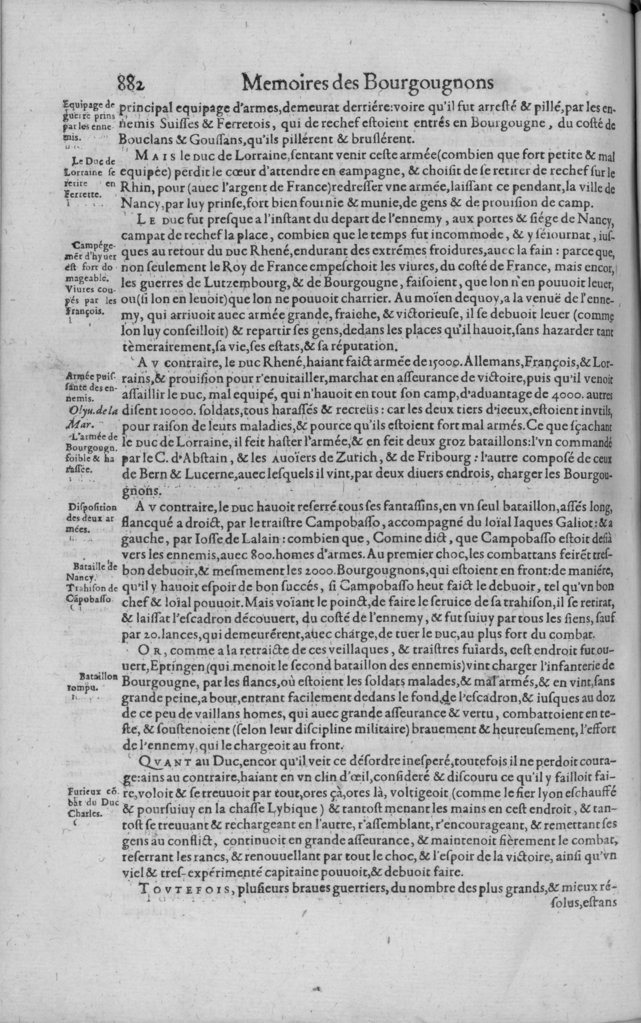 882 Memoires des Bourgougnons
Equipage de
guerre prins
par les enne
mis.
principal equipage d'armes, demeurat derriére: voire qu'il fut arresté & pillé, par les en-
nemis Suisses & Ferretois, qui de rechef estoient entrés en Bourgougne, du costé de
Bouclans & Goussans, qu'ils pillérent & bruslérent.
Le Duc de
Lorraine se
retire en
Ferrette.
MAIS le DUC de Lorraine, sentant venir ceste armée (combien que fort petite & mal
equipée) perdit le cœur d'attendre en campagne, & choisit de se retirer de rechef sur le
Rhin, pour (auec l'argent de France) redresser vne armée, laissant ce pendant, la ville de
Nancy, par luy prinse, fort bien fournie & munie, de gens & de prouision de camp.
LE DUC fut presque a l'instant du depart de l'ennemy, aux portes & siége de Nancy,
campat de rechef la place, combien que le temps fut incommode, & y séiournat, ius-
Campége-
mēt d'hyuer
est fort do-
mageable.
Viures cou-
pés par les
François.
ques au retour du DUC Rhené, endurant des extrémes froidures, auec la faim: parce que,
non seulement le Roy de France empeschoit les viures, du costé de France, mais encor,
les guerres de Lutzembourg, & de Bourgougne, faisoient, que lon n'en pouuoit leuer,
ou (si lon en leuoit) que lon ne pouuoit charrier. Au moïen dequoy, a la venuë de l'enne-
my, qui arriuoit auec armée grande, fraiche, & victorieuse, il se debuoit leuer (comme
lon luy conseilloit) & repartir ses gens, dedans les places qu'il hauoit, sans hazarder tant
tèmerairement, sa vie, ses estats, & sa réputation.
Armée puis-
sante des en-
nemis.
Olyu. de la
Mar.
L'armée de
Bourgougn.
foible & ha
rassée.
AV contraire, le DUC Rhené, haiant faict armée de 15000. Allemans, François, & Lor-
rains, & prouision pour r'enuitailler, marchat en asseurance de victoire, puis qu'il venoit
assaillir le DUC, mal equipé, qui n'hauoit en tout son camp, d'aduantage de 4000. autres
disent 10000. soldats, tous harassés & recreüs: car les deux tiers d'iceux, estoient invtils,
pour raison de leurs maladies, & pource qu'ils estoient fort mal armés. Ce que sçachant
le DUC de Lorraine, il feit haster l'armée, & en feit deux groz bataillons: l'vn commandé
par le C. d'Abstain, & les AUOïERS de Zurich, & de Fribourg: l'autre composé de ceux
de Bern & Lucerne, auec lesquels il vint, par deux diuers endrois, charger les Bourgou-
gnons.
Disposition
des deux ar
mées.
AV contraire, le DUC hauoit reserré tous ses fantassins, en vn seul bataillon, assés long,
flancqué a droict, par le traistre Campobasso, accompagné du loïal Iaques Galiot: & a
gauche, par Iosse de Lalain: combien que, Comine dict, que Campobasso estoit desià
vers les ennemis, auec 800. homes d'armes. Au premier choc, les combattans feirēt tres-
Bataille de
Nancy.
Trahison de
Cāpobasso.
bon debuoir, & mesmement les 2000. Bourgougnons, qui estoient en front: de maniére,
qu'il y hauoit espoir de bon succés, si Campobasso heut faict le debuoir, tel qu'vn bon
chef & loïal pouuoit. Mais voïant le poinct, de faire le seruice de sa trahison, il se retirat,
& laissat l'escadron découuert, du costé de l'ennemy, & fut suiuy par tous les siens, sauf
par 20. lances, qui demeurérent, auec charge, de tuer le DUC, au plus fort du combat.
OR, comme a la retraicte de ces veillaques, & traistres fuïards, cest endroit fut ou-
Bataillon
rompu.
uert, Eptingen (qui menoit le second bataillon des ennemis) vint charger l'infanterie de
Bourgougne, par les flancs, où estoient les soldats malades, & mal armés, & en vint, sans
grande peine, a bout, entrant facilement dedans le fond, de l'escadron, & iusques au doz
de ce peu de vaillans homes, qui auec grande asseurance & vertu, combattoient en te-
ste, & soustenoient (selon leur discipline militaire) brauement & heureusement, l'effort
de l'ennemy, qui le chargeoit au front.
QVANT au Duc, encor qu'il veit ce désordre inesperé, toutefois il ne perdoit coura-
ge: ains au contraire, haiant en vn clin d'œil, consideré & discouru ce qu'il y failloit fai-
Furieux cō
bat du Duc
Charles.
re, voloit & se treuuoit par tout, ores çà, ores là, voltigeoit (comme le fier lyon eschauffé
& poursuiuy en la chasse Lybique) & tantost menant les mains en cest endroit, & tan-
tost se treuuant & rechargeant en l'autre, r'assemblant, r'encourageant, & remettant ses
gens au conflict, continuoit en grande asseurance, & maintenoit fiérement le combat,
reserrant les rancs, & renouuellant par tout le choc, & l'espoir de la victoire, ainsi qu'vn
viel & tres-expérimenté capitaine pouuoit, & debuoit faire.
TOVTEFOIS, plusieurs braues guerriers, du nombre des plus grands, & mieux ré-
solus, estans